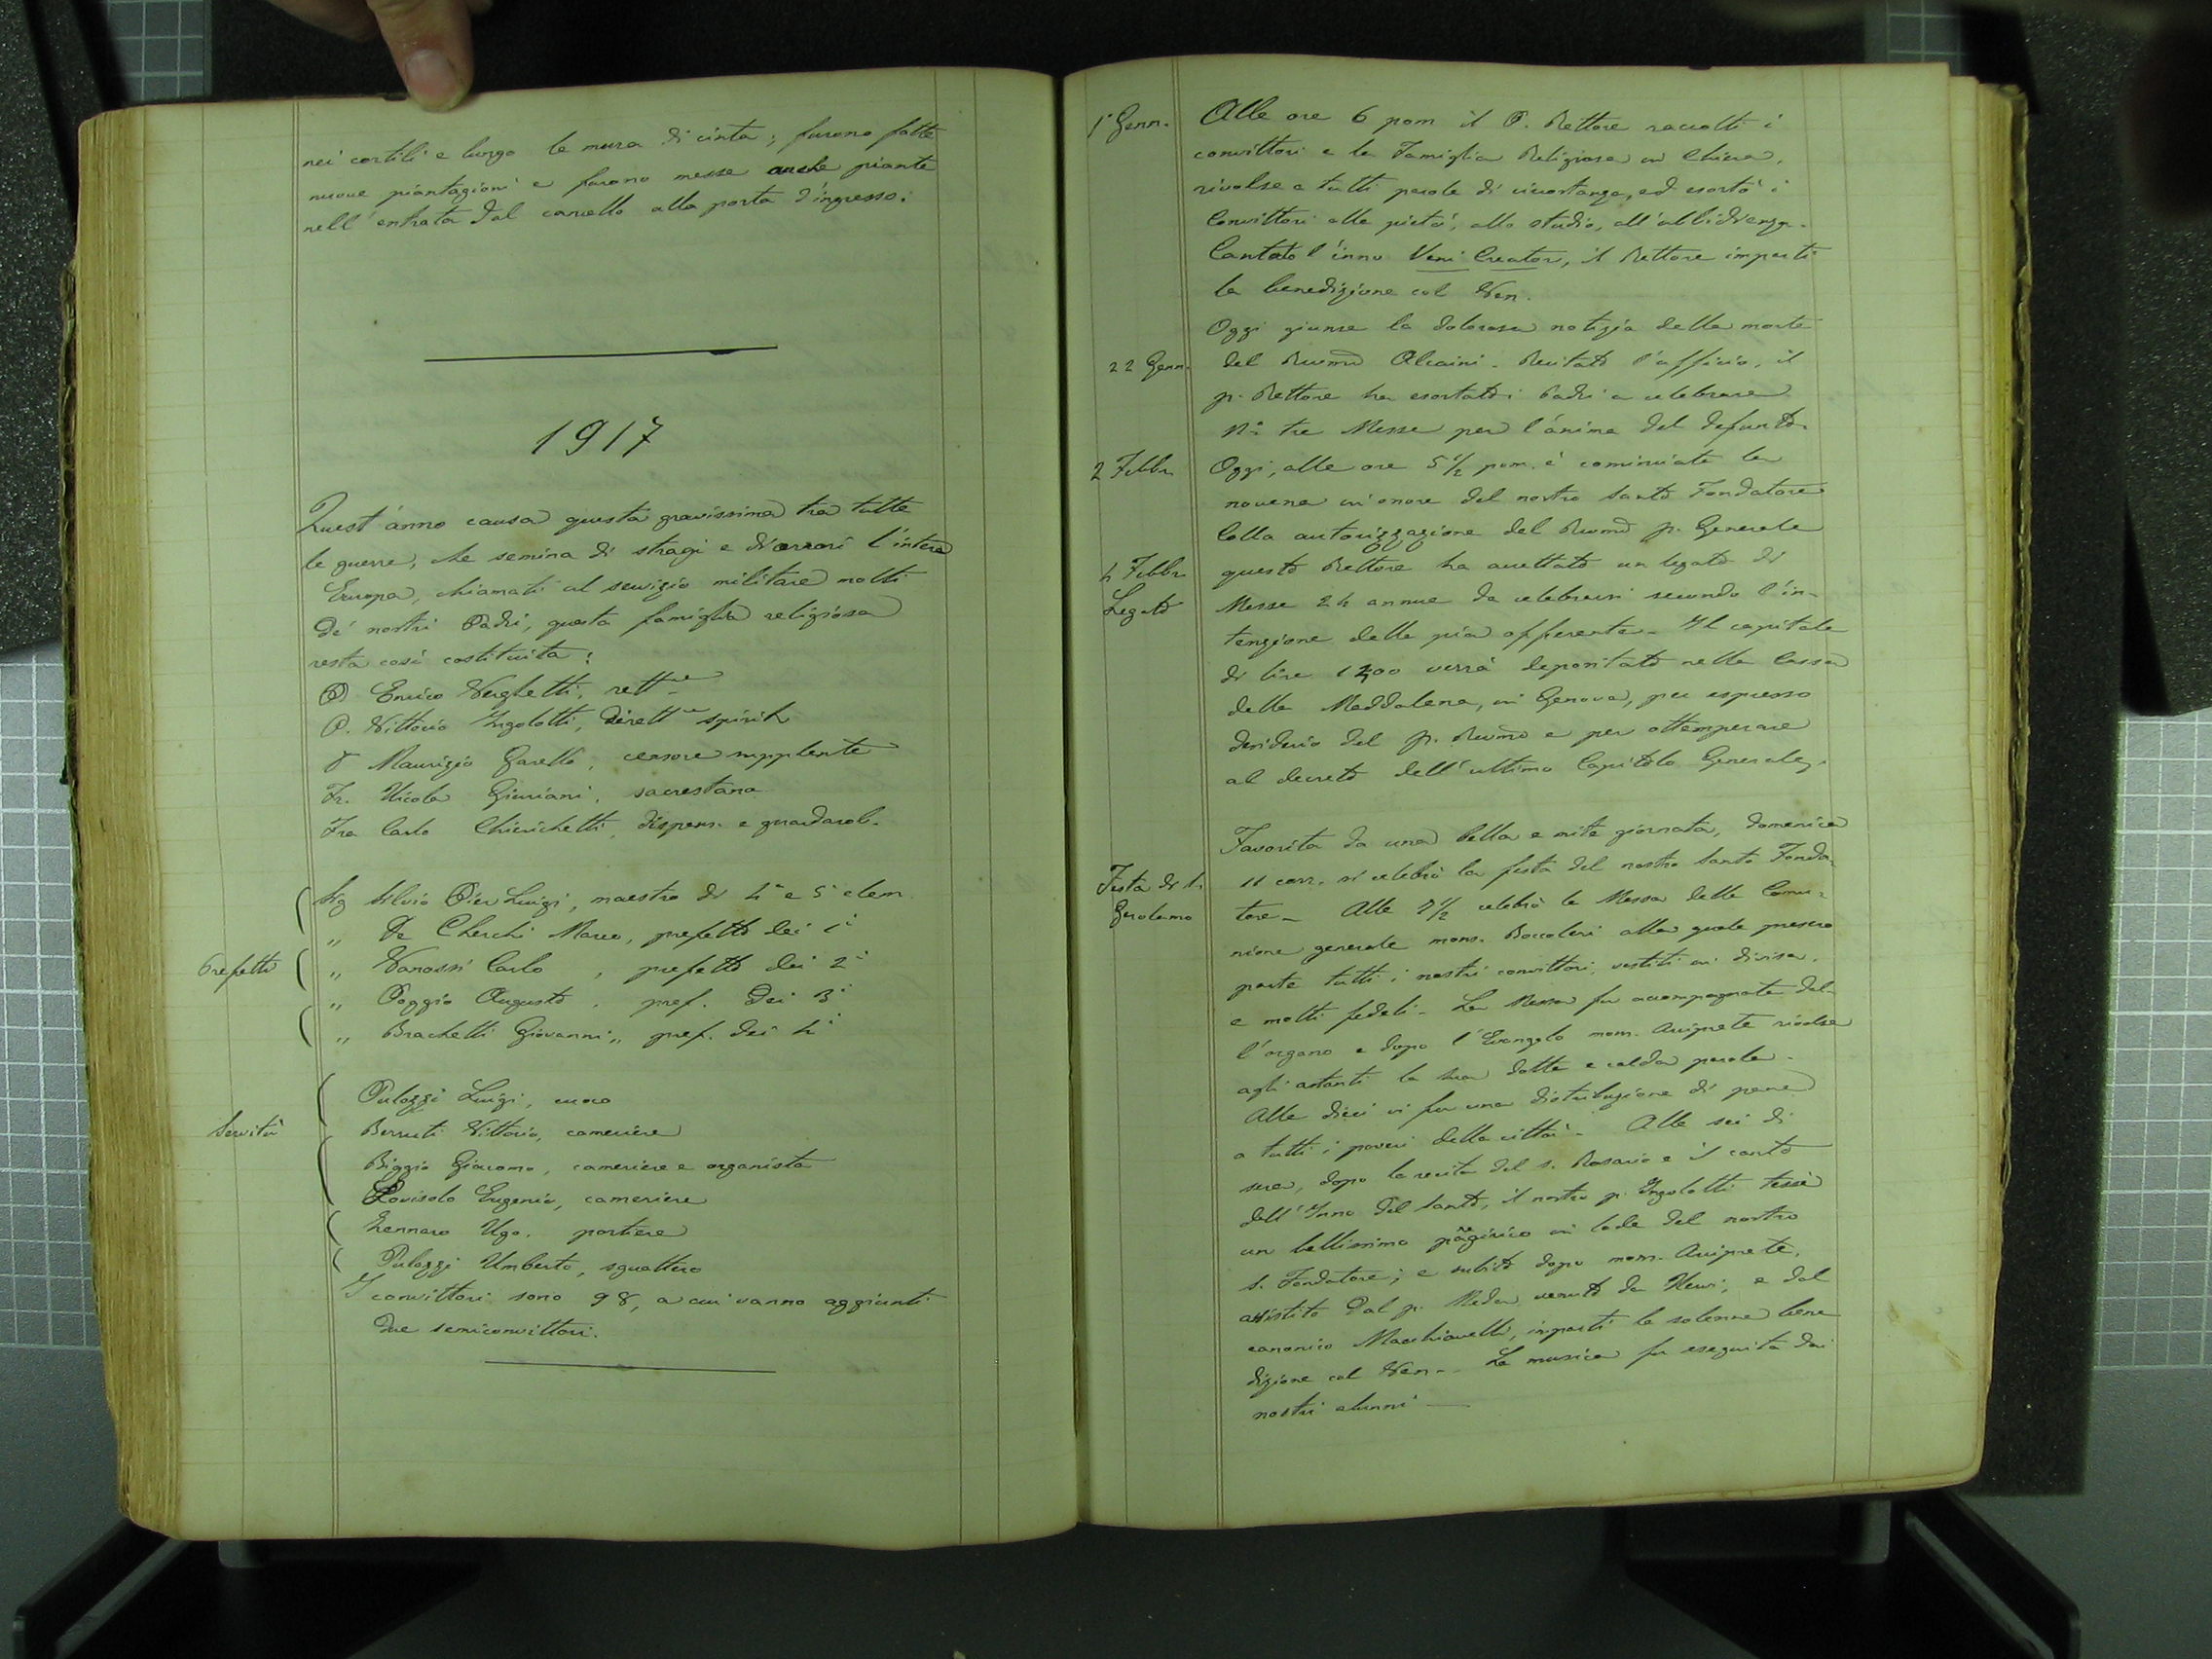 nei cortili e lungo le mura di cinta; furono fatte
nuove piantagioni e furono messe anche piante
nell'entrata dal cancello alla porta d'ingresso.
1917
Quest'anno causa questa gravissima tra tutte
le guerre, che semina di stragi e di orrori l'intera
Europa, chiamati al servizio militare molti
de' nostri Padri, questa famiglia religiosa
resta così costituita:
P. Enrico Verghetti, rett.re
P. Vittorio Ingolotti, dirett.re spirit.
Maurizio Garelli, censore supplente
Fr. Nicola Giuriani, sacrestano
Fra Carlo Chierichetti, dispens. e guardarob.
Sig Silvio Pier Luigi, maestro di 4a e 5a elem.
Prefetti
„ De Cherchi Marco, prefetto dei 1i
„ Vanossi Carlo, prefetto dei 2i
„ Poggio Augusto, pref. dei 3i
„ Brachetti Giovanni, pref. dei 4i
Servitù
Palazzi Luigi, cuoco
Berruti Vittorio, cameriere
Biggio Giacomo, cameriere e organista
Lovisolo Eugenio, cameriere
Gennaro Ugo, portiere
Palazzi Umberto, sguattero
I convittori sono 98, a cui vanno aggiunti
due semiconvittori.
1° Genn. Alle ore 6 pom il P. Rettore raccolti i
convittori e la Famiglia Religiosa in Chiesa,
rivolse a tutti parole di circostanza, ed esortò i
Convittori alla pietà, allo studio, all'ubbidienza.
Cantato l'inno Veni Creator, il Rettore impartì
la benedizione col Ven.
Oggi giunse la dolorosa notizia della morte
22 Genn. del Rev.mo Alcaini. Recitato l'ufficio, il
p. Rettore ha esortato i Padri a celebrare
N° tre Messe per l'anima del defunto.
2 Febbr. Oggi, alle ore 5 1/2 pom. è cominciata la
novena in onore del nostro Santo Fondatore
Colla autorizzazione del Rev.mo p. Generale
4 Febbr. questo Rettore ha accettato un legato di
Legato Messe 24 annue da celebrarsi secondo l'in-
tenzione della pia offerente. Il capitale
di lire 1200 verrà depositato nella Cassa
della Maddalena, in Genova, per espresso
desiderio del p. Rev.mo e per ottemperare
al decreto dell'ultimo Capitolo Generale.
Favorita da una bella e mite giornata, domenica
Festa di S. 11 corr. si celebrò la festa del nostro Santo Fonda-
Gerolamo tore. Alle 7 1/2 celebrò la Messa della Comu-
nione generale mons. Boccoleri alla quale presero
parte tutti i nostri convittori, vestiti in divisa,
e molti fedeli. La Messa fu accompagnata dal-
l'organo e dopo l'Evangelo mons. Arciprete rivolse
agli astanti la sua dotta e calda parola.
Alle dieci vi fu una distribuzione di pane
a tutti i poveri della città. Alle sei di
sera, dopo la recita del s. Rosario e il canto
dell'Inno del Santo, il nostro p. Ingolotti tessè
un bellissimo panegirico in lode del nostro
s. Fondatore; e subito dopo mons. Arciprete,
assistito dal p. Meda venuto da Nervi, e dal
canonico Macchiavelli, impartì la solenne bene
dizione col Ven. La musica fu eseguita dai
nostri alunni